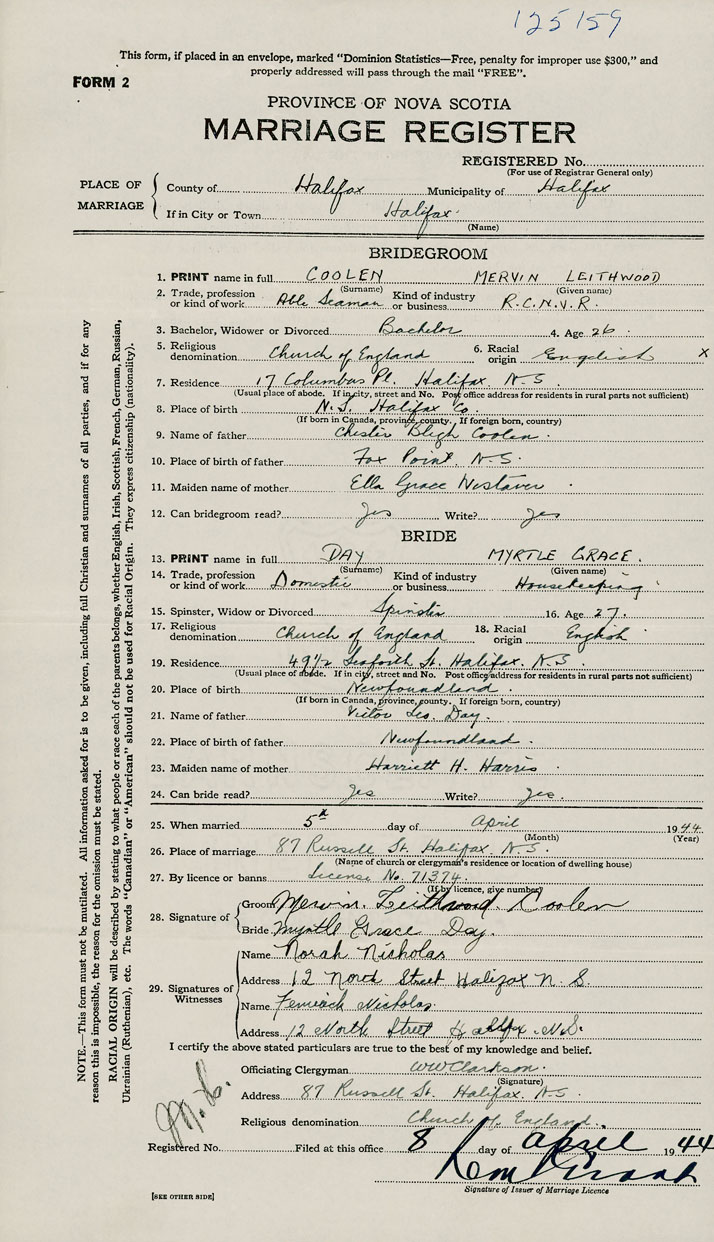 125159
This form, if placed in an envelope, marked "Dominion Statistics—Free, penalty for improper use $300," and
properly addressed will pass through the mail "FREE".
FORM 2
PROVINCE OF NOVA SCOTIA
MARRIAGE REGISTER
REGISTERED No.
(For use of Registrar General only)
PLACE OF MARRIAGE
County of Halifax Municipality of Halifax
If in City or Town Halifax
(Name)
BRIDEGROOM
1. PRINT name in full COOLEN MERVIN LEITHWOOD
(Surname) (Given name)
2. Trade, profession or kind of work Able Seaman Kind of industry or business R.C.N.V.R.
3. Bachelor, Widower or Divorced Bachelor 4. Age 26
5. Religious denomination Church of England 6. Racial origin English X
7. Residence 17 Columbus Pl. Halifax. N.S.
(Usual place of abode. If in city, street and No. Post office address for residents in rural parts not sufficient)
8. Place of birth N.S. Halifax Co.
(If born in Canada, province, county. If foreign born, country)
9. Name of father Chester Bligh Coolen
10. Place of birth of father Fox Point. N.S.
11. Maiden name of mother Ella Grace Westaver
12. Can bridegroom read? Yes Write? Yes
BRIDE
13. PRINT name in full DAY MYRTLE GRACE.
(Surname) (Given name)
14. Trade, profession or kind of work Domestic Kind of industry or business Housekeeping
15. Spinster, Widow or Divorced Spinster 16. Age 27
17. Religious denomination Church of England 18. Racial origin English
19. Residence 49 1/2 Seaforth St. Halifax. N.S.
(Usual place of abode. If in city, street and No. Post office address for residents in rural parts not sufficient)
20. Place of birth Newfoundland
(If born in Canada, province, county. If foreign born, country)
21. Name of father Victor Day.
22. Place of birth of father Newfoundland
23. Maiden name of mother Harriett H. Harris
24. Can bride read? Yes Write? Yes.
25. When married 5th day of April 1944
(Month) (Year)
26. Place of marriage 87 Russell St. Halifax. N.S.
(Name of church or clergyman's residence or location of dwelling house)
27. By licence or banns License No. 71374
(If by licence, give number)
28. Signature of
Groom Mervin Leithwood Coolen
Bride Myrtle Grace Day.
29. Signatures of Witnesses
Name Norah Nicholas
Address 12 North Street Halifax N.S.
Name Fenwick Nicholas
Address 12 North Street Halifax. N.S.
I certify the above stated particulars are true to the best of my knowledge and belief.
Officiating Clergyman WW Clarkson
(Signature)
Address 87 Russell St. Halifax. N.S.
Religious denomination Church of England.
Registered No. Filed at this office 8 day of April 1944
Signature of Issuer of Marriage Licence
[SEE OTHER SIDE]
NOTE.—This form must not be mutilated. All information asked for is to be given, including full Christian and surnames of all parties, and if for any
reason this is impossible, the reason for the omission must be stated.
RACIAL ORIGIN will be described by stating to what people or race each of the parents belongs, whether English, Irish, Scottish, French, German, Russian,
Ukrainian (Ruthenian), etc. The words "Canadian" or "American" should not be used for Racial Origin. They express citizenship (nationality).